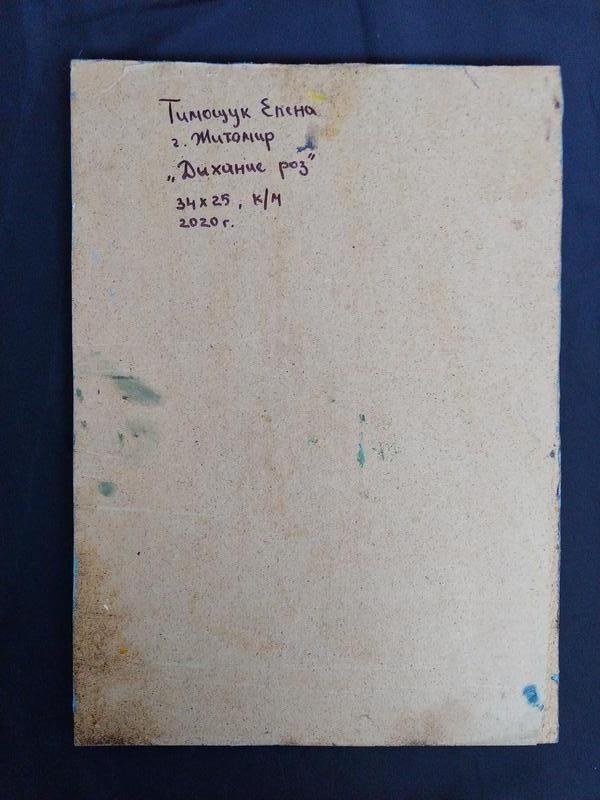 Тимощук Елена
г. Житомир
„Дихание роз"
34х25, к/м
2020г.